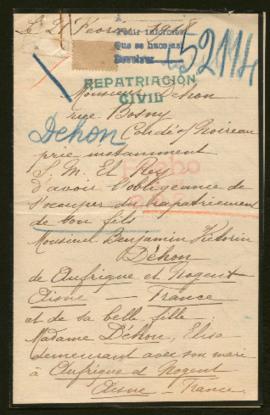 Le 21 Février 1918
Pedir informes
Que se haceja
52114
REPATRIACIÓN
CIVIL
Monsieur Dehon
rue Bosny
Dehon
Condé s/ Noireau
prie instamment
S. M. El Rey
d'avoir l'obligeance de
s'occuper du rapatriement
de son fils
Monsieur Benjamin Victorin
Déhon
de Aufrique et Nogent
Aisne — France
et de sa belle fille
Madame Déhon, Elisa
demeurant avec son mari
à Aufrique et Nogent
Aisne — France